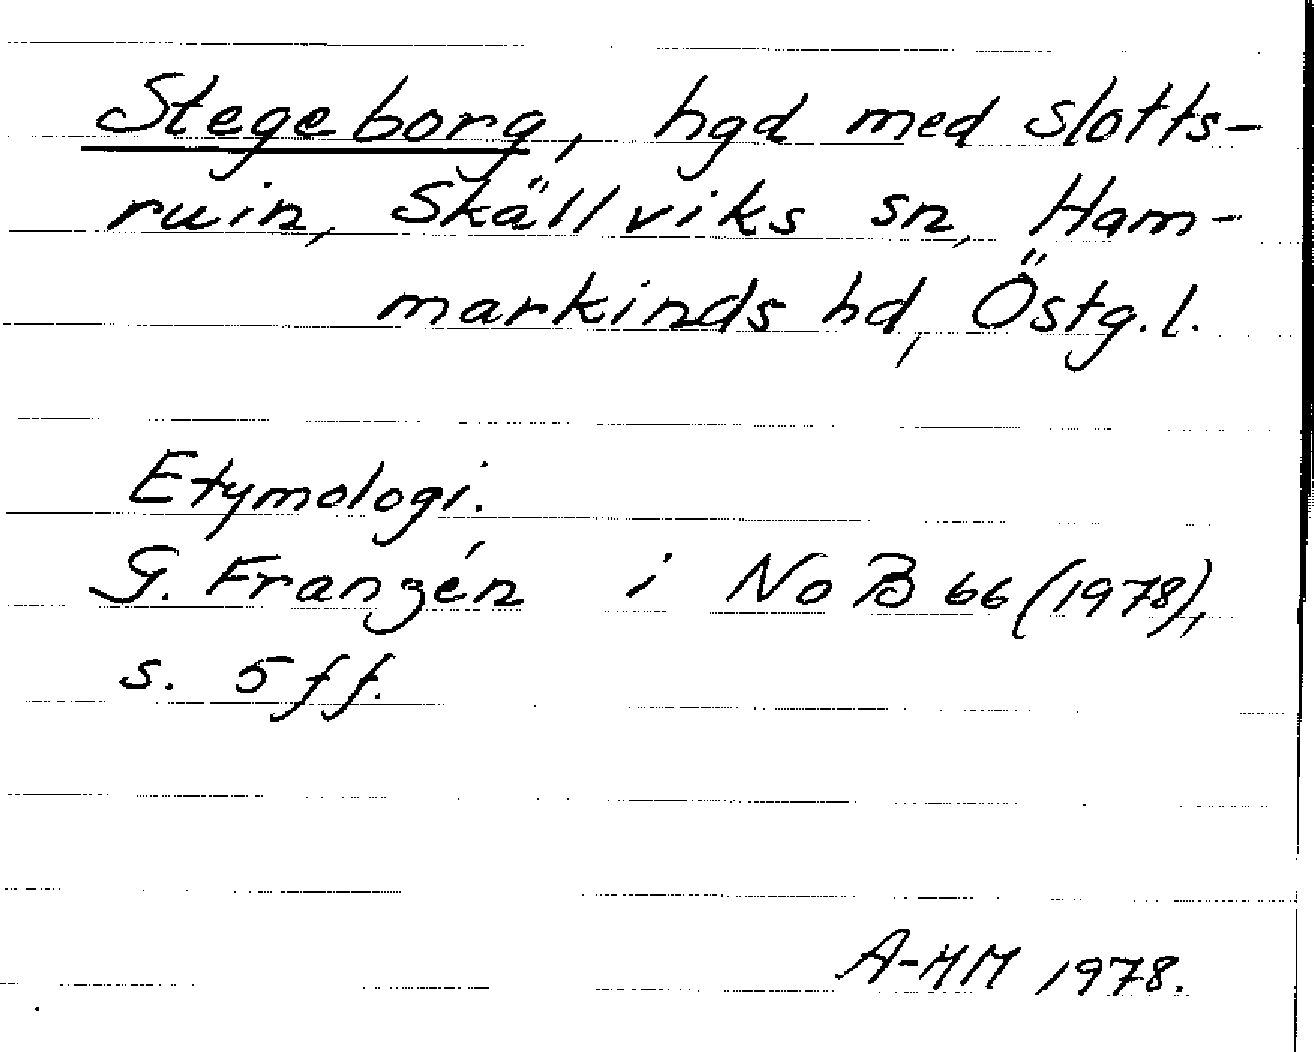 Stegeborg, hgd med slotts-
ruin, Skällviks sn, Ham-
markinds hd, Östg.l.
Etymologi.
G. Franzén i NoB 66 (1978),
s. 5 ff.
A-HM 1978.